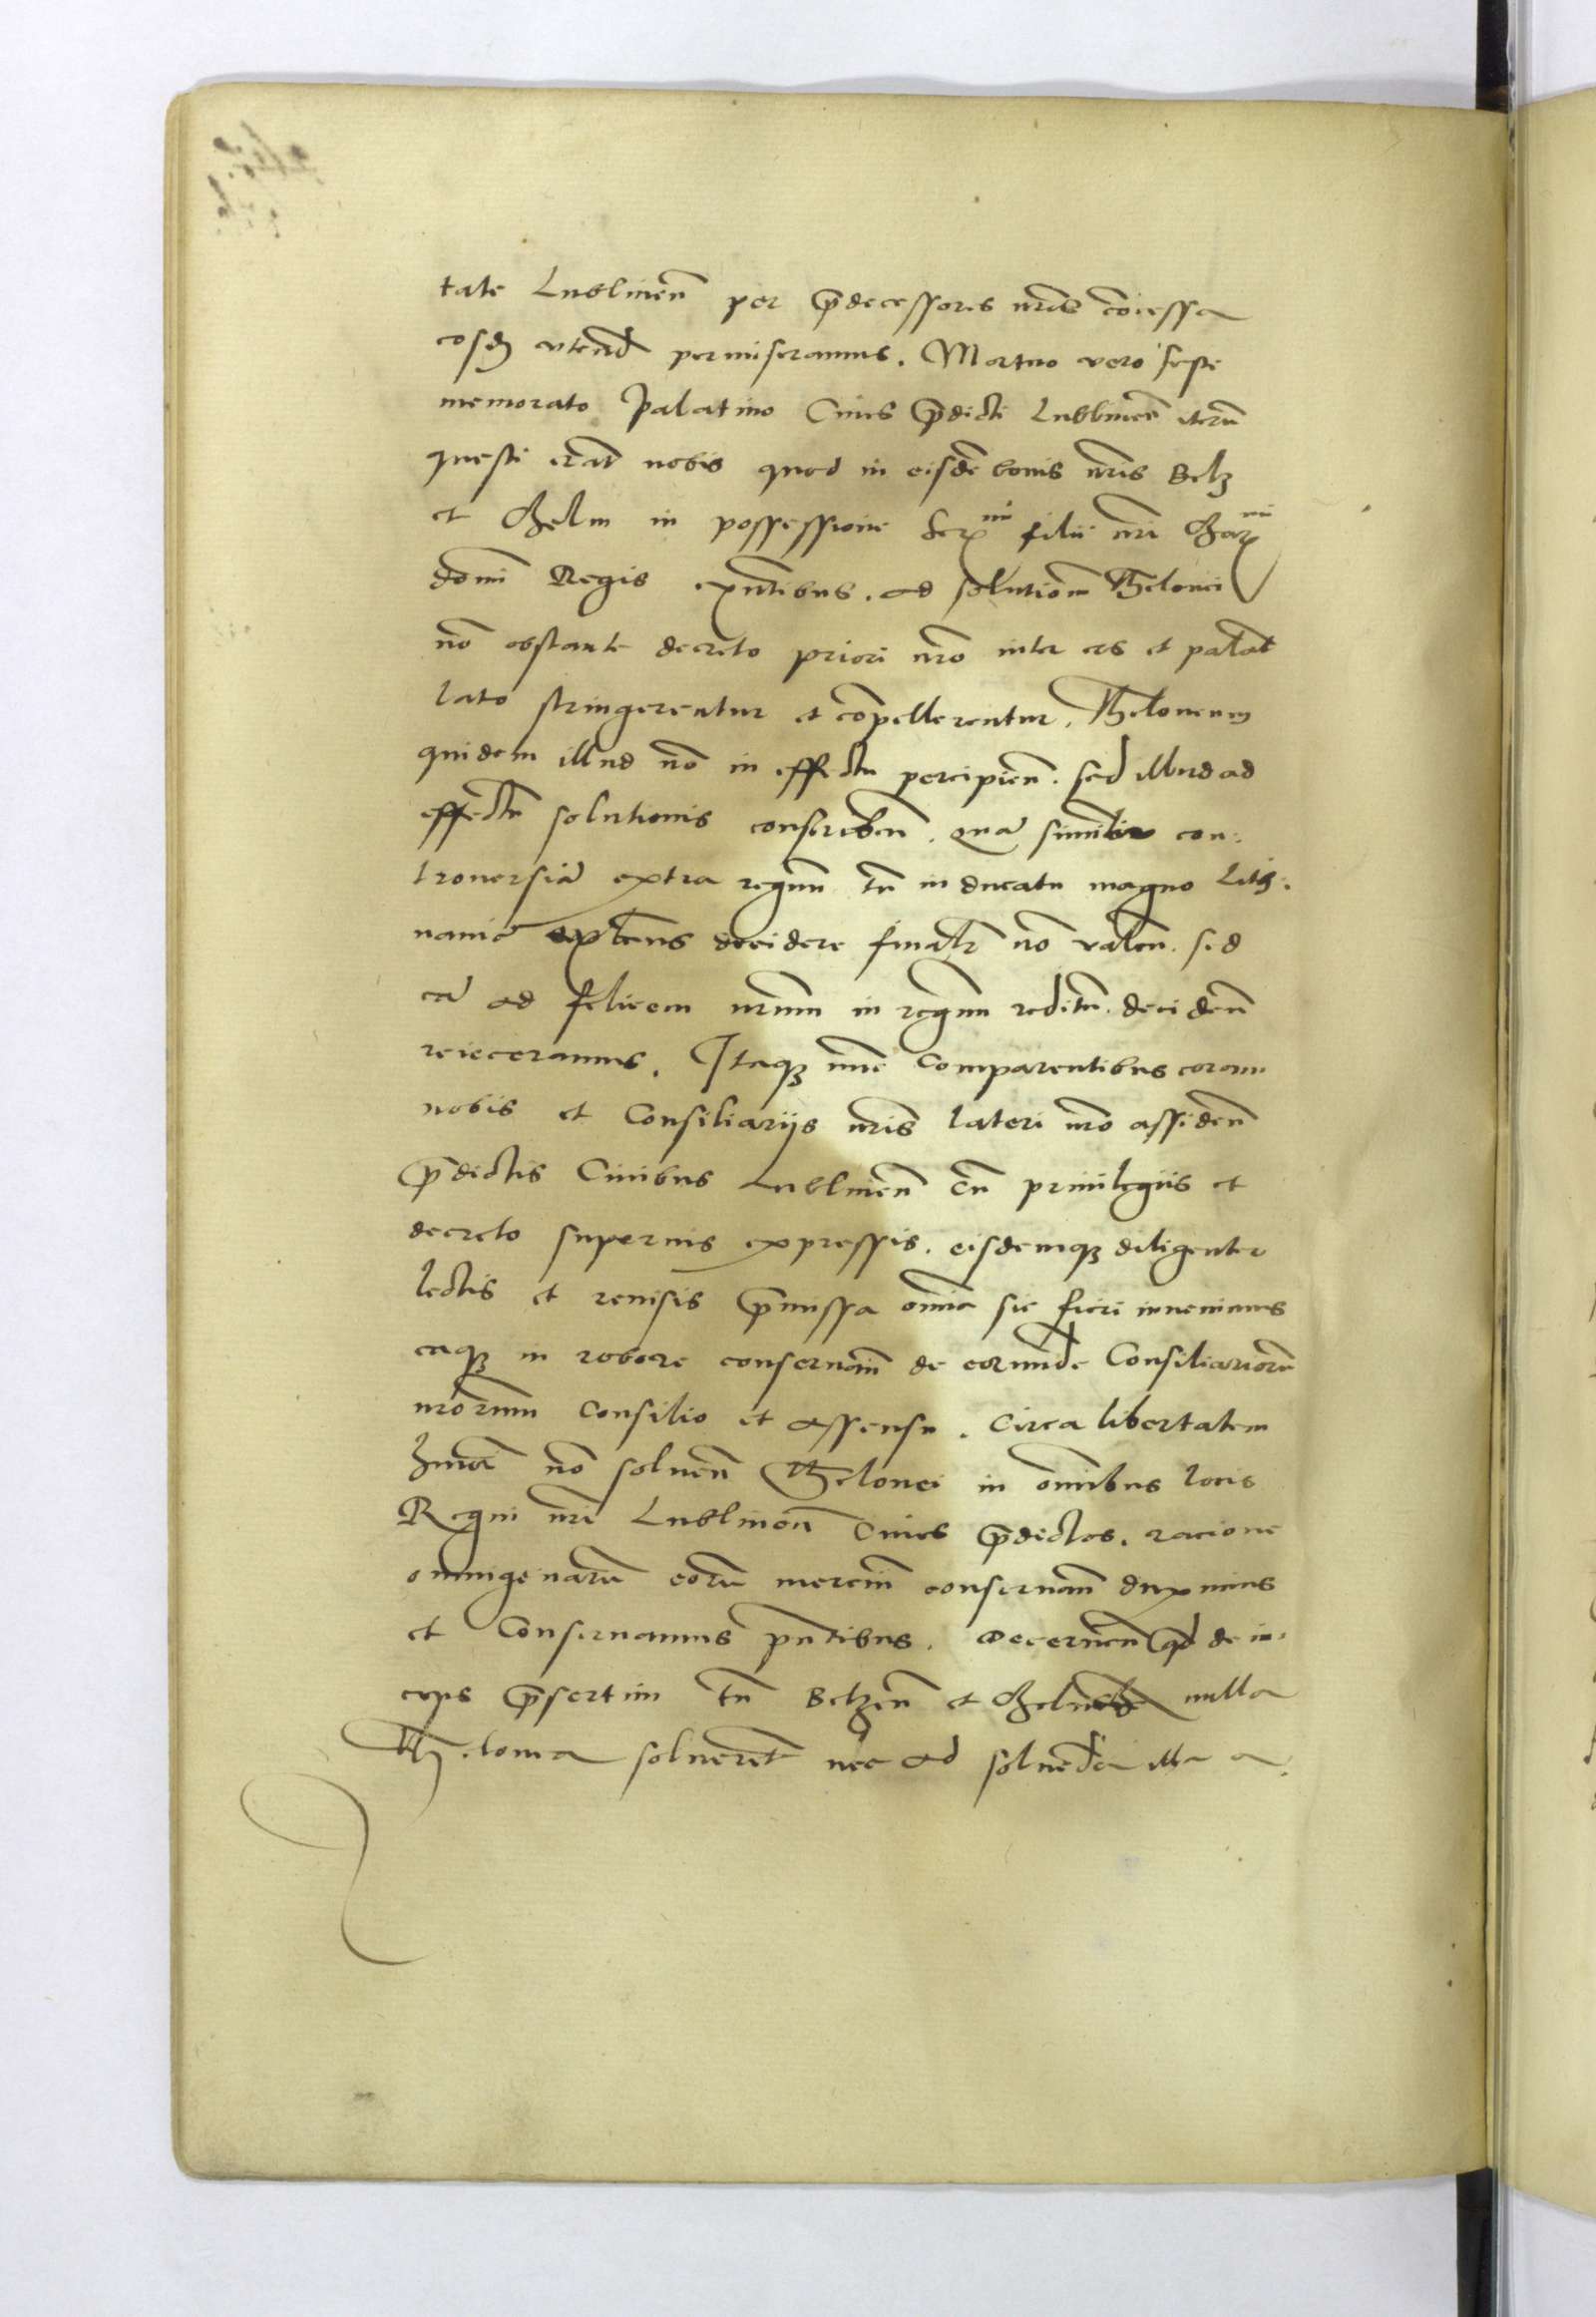 tate Lublineñ per p̃decessores nr̃os cõcessa
eosđ utend̃ permiseramus. Mortuo vero sepe
memorato Palatino Cives p̃dicti Lublineñ iterũ
questi erãt nobis quod in eisdẽ bonis nr̃is Belz
et Chelm in possessione Serᵐⁱ filii nr̃i Charᵐⁱ
domĩ Regis exñtibus. ad solutionẽ Thelonei
nõ obstante decreto priori nr̃o inter eos et palat̃
lato stringerentur et cõpellerentur. Theloneum
quidem illud nõ in effectu percipieñ. sed illud ad
effectũ solutionis conscribeñ. quã similiter con:
troversiã extra regnũ tũ in ducatu magno Lith:
vaniæ exñtens decidere finalr̃ nõ valeñ. sed
eã ad felicem nr̃um in regnum reditũ. decideñ
reieceramus. Itaqꝫ nũc Comparentibus coram
nobis et Consiliariis nr̃is lateri nr̃o assideñ
p̃dictis Civibus Lublineñ cũ privilegiis et
decreto superius expressis. eisdemqꝫ diligenter
lectis et revisis p̃missa om̃ia sic fieri invenimus
eaqꝫ in robore conservañ de eorundẽ Consiliariorũ
nr̃orum Consilio et assensu. Circa libertatem
hm̃oi nõ solveñ Thelonei in om̃ibus locis
Regni nr̃i Lublineñ Cives p̃dictos. racione
omnigenarũ eorũ merciũ conservañ duximus
et Conservamus pñtibus. Decerneñ qđ dein:
ceps p̃sertim tũ Belzeñ et Chelmeñ nulla
Thelonea solverẽt nec ad solvẽda illa a.